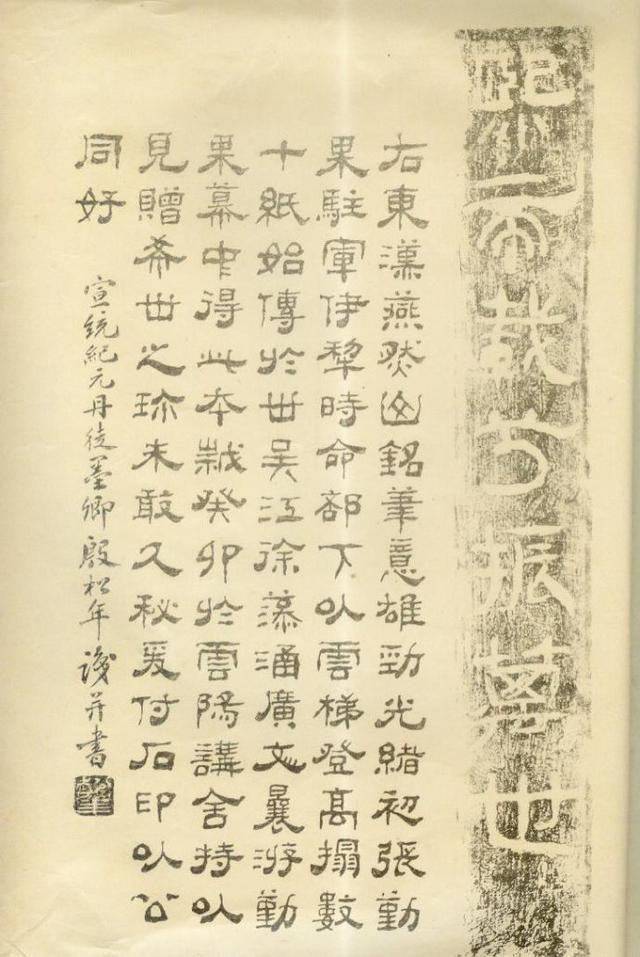 熙帝載兮振萬世
右東漢燕然山銘筆意雄勁光緒初張勤
果駐軍伊犂時命部下以雲梯登高搨數
十紙始傳於世吳江徐藻涵廣文曩游勤
果幕中得此本越癸卯於雲陽講舍持以
見贈希世之珍未敢久秘爰付石印以公
同好
宣統紀元丹徒墨卿殷松年識并書